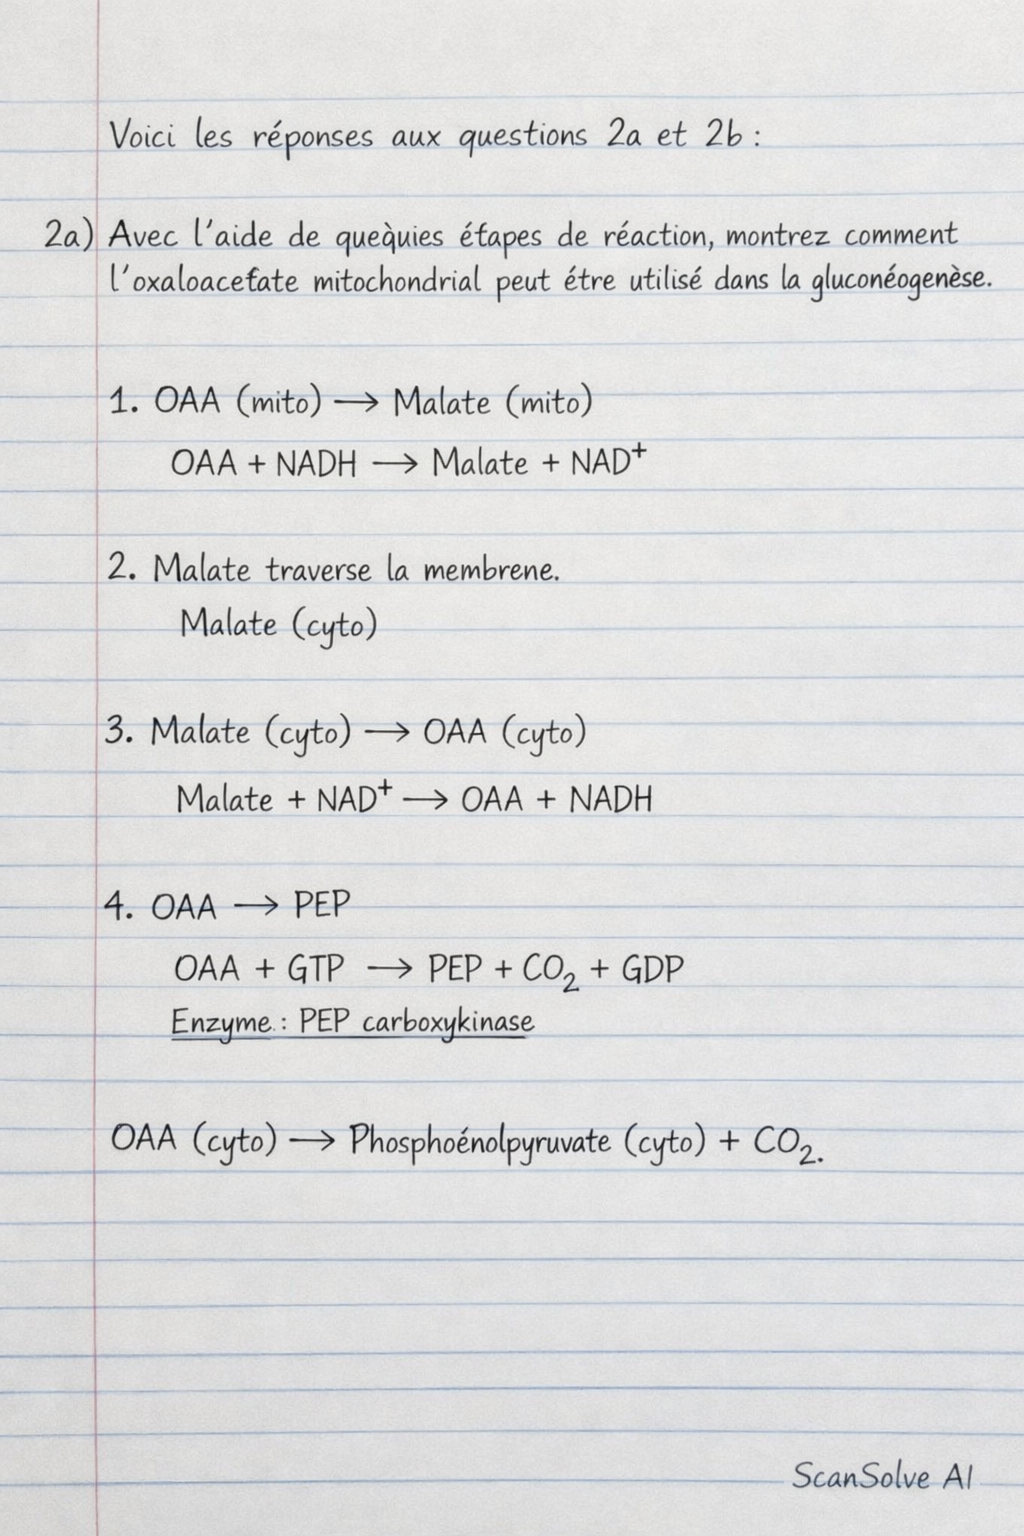 Voici les réponses aux questions 2a et 2b :
2a) Avec l'aide de quequies étapes de réaction, montrez comment
l'oxaloacetate mitochondrial peut étre utilisé dans la gluconéogenèse.
1. OAA (mito) → Malate (mito)
OAA + NADH → Malate + NAD⁺
2. Malate traverse la membrene.
Malate (cyto)
3. Malate (cyto) → OAA (cyto)
Malate + NAD⁺ → OAA + NADH
4. OAA → PEP
OAA + GTP → PEP + CO₂ + GDP
Enzyme : PEP carboxykinase
OAA (cyto) → Phosphoénolpyruvate (cyto) + CO₂.
ScanSolve AI